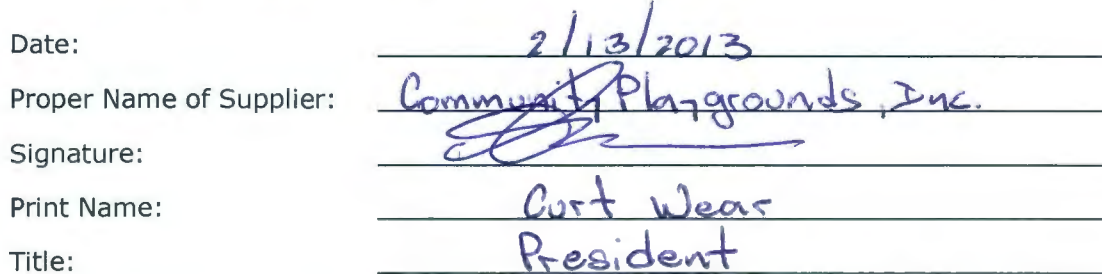 Date: 2/13/2013
Proper Name of Supplier: Community Playgrounds, Inc.
Signature:
Print Name: Curt Wear
Title: President